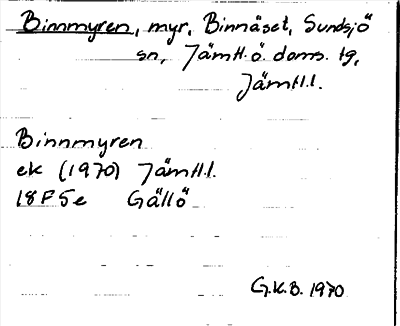 Binnmyren, myr, Binnäset, Sundsjö
sn, Jämtl. ö. doms. tg,
Jämtl.l.
Binnmyren
ek (1970) Jämtl.l.
18F5e Gällö
G.K.B. 1970